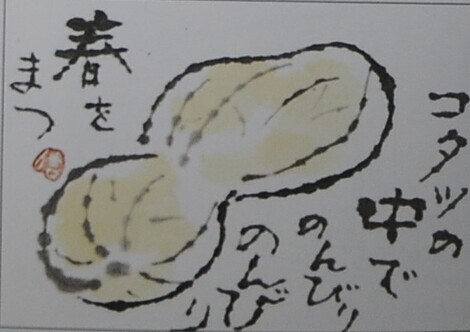 コタツの
中で
のんびり
のんびり
春を
まつ